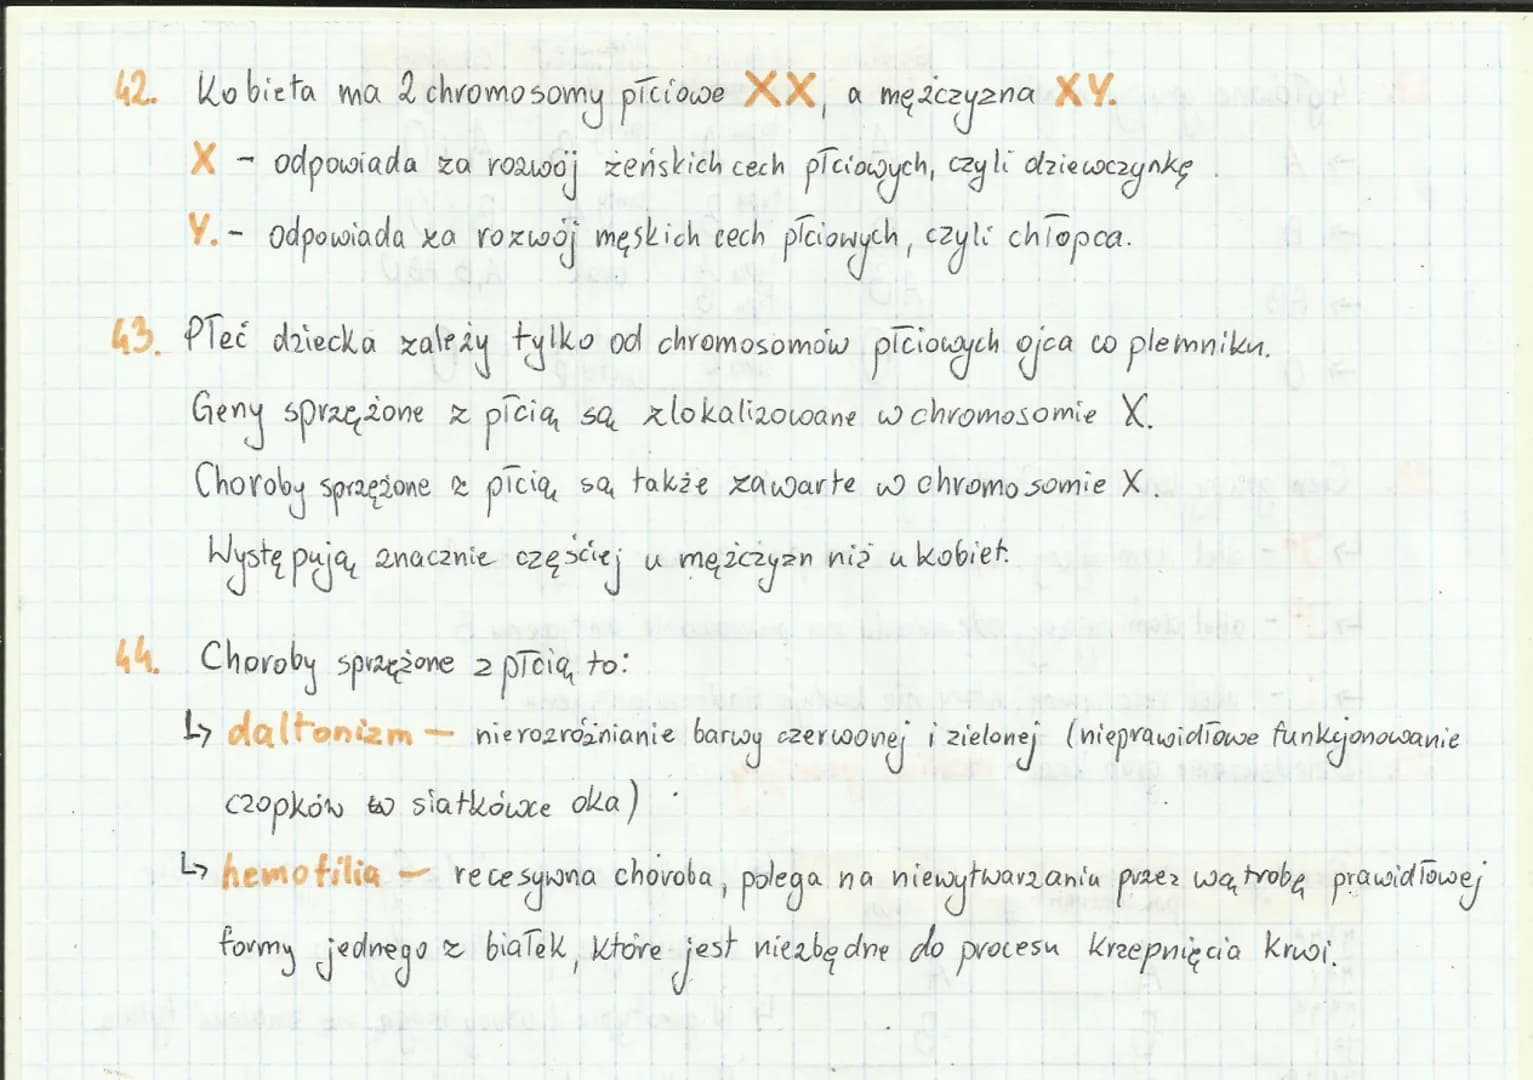 42. Kobieta ma 2 chromosomy płciowe XX, a mężczyzna XY.
X - odpowiada za rozwój żeńskich cech płciowych, czyli dziewczynkę.
Y. - odpowiada za rozwój męskich cech płciowych, czyli chłopca.
43. Płeć dziecka zależy tylko od chromosomów płciowych ojca co plemniku.
Geny sprzężone z płcią są zlokalizowane w chromosomie X.
Choroby sprzężone z płcią są także zawarte w chromosomie X.
Występują znacznie częściej u mężczyzn niż u kobiet.
44. Choroby sprzężone z płcią to:
↳ daltonizm - nierozróżnianie barwy czerwonej i zielonej (nieprawidłowe funkcjonowanie
czopków w siatkówce oka)
↳ hemofilia - recesywna choroba, polega na niewytwarzaniu przez wątrobę prawidłowej
formy jednego z białek, które jest niezbędne do procesu krzepnięcia krwi.